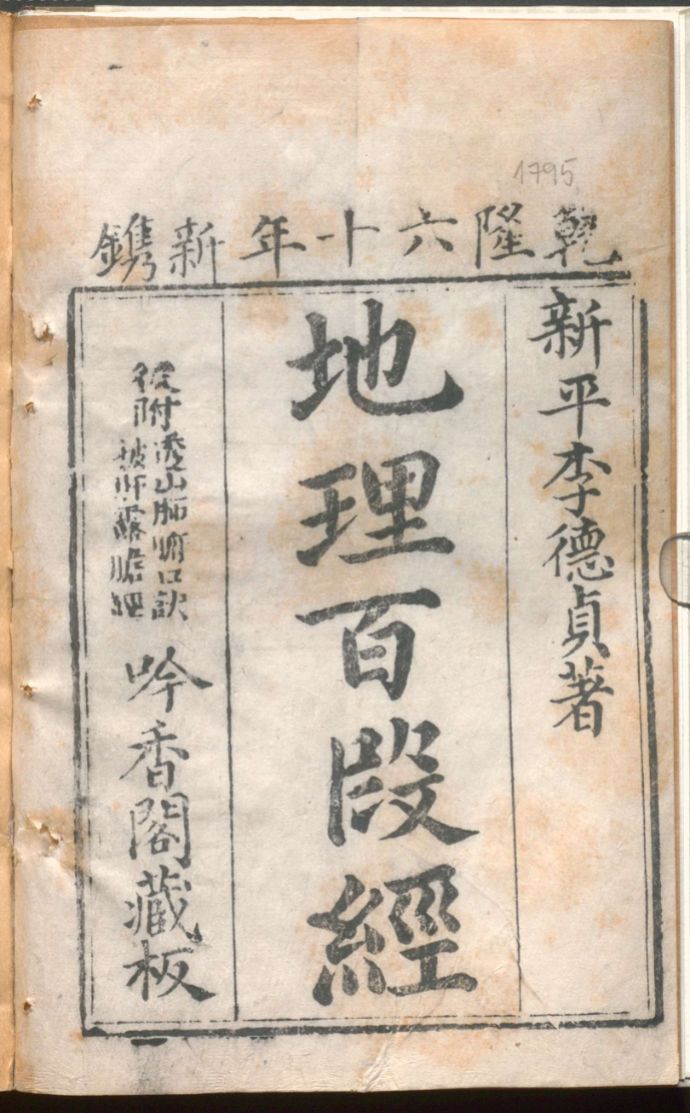 1795
乾隆六十年新鐫
新平李德貞著
地理百段經
後附透山肺腑口訣
披肝露膽經
吟香閣藏板